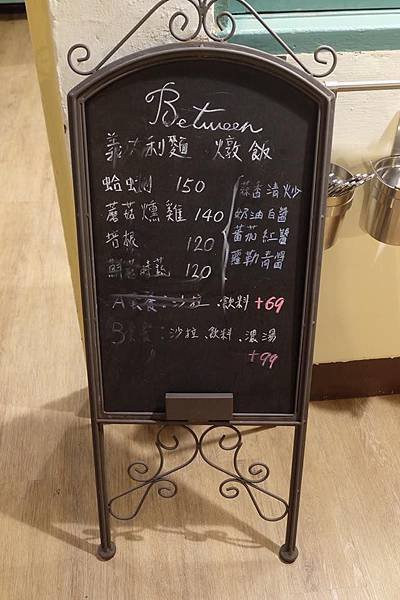 Between
義大利麵 燉飯
蛤蜊 150
蘑菇燻雞 140
培根 120
鮮菇時蔬 120
蒜香清炒
奶油白醬
蕃茄紅醬
羅勒青醬
A套餐:沙拉、飲料 +69
B套餐:沙拉、飲料、濃湯
+99